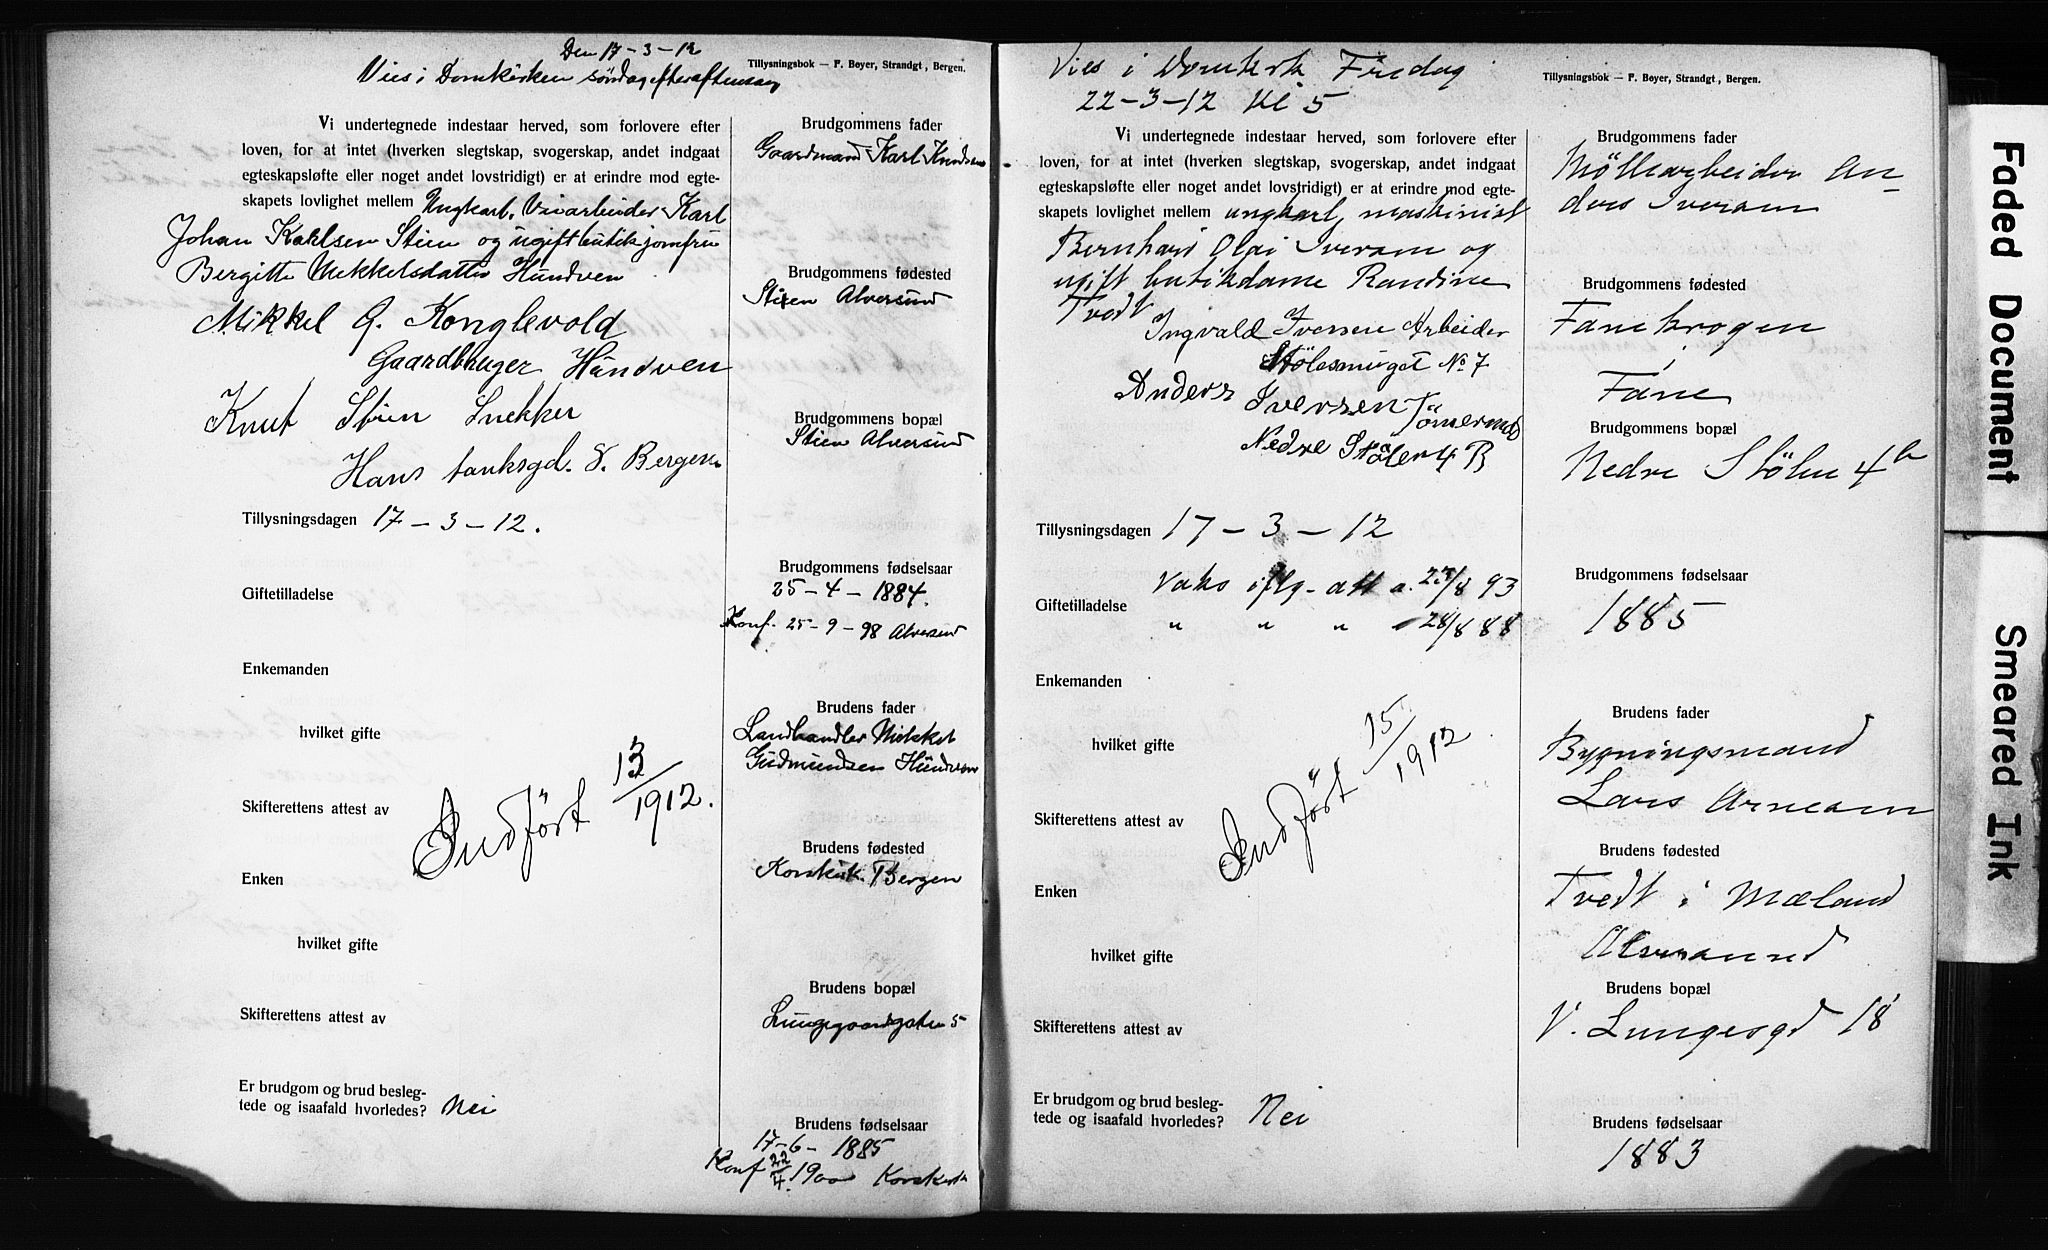 Den 17-3-12
Vies i Domkirken søndag efter aftensang
Tillysningsbok — F. Beyer, Strandgt, Bergen.
Vi undertegnede indestaar herved, som forlovere efter
loven, for at intet (hverken slegtskap, svogerskap, andet indgaat
egteskapsløfte eller noget andet lovstridigt) er at erindre mod egte-
skapets lovlighet mellem Ungkarl, Karl
Johan Karlsen Stien og ugift butikjomfru
Bergitte Mikkelsdatter Hundven
Mikkel G. Konglevold
Gaardbruger Hundven
Knut Stien Snekker
Hans tanksgd. 8. Bergen
Tillysningsdagen 17-3-12.
Giftetilladelse
Enkemanden
hvilket gifte
Skifterettens attest av
Indført 13/3 1912.
Enken
hvilket gifte
Skifterettens attest av
Er brudgom og brud besleg-
tede og isaafald hvorledes? Nei
Brudgommens fader
Gaardmand Karl Knudsen
Brudgommens fødested
Stien Alversund
Brudgommens bopæl
Stien Alversund
Brudgommens fødselsaar
25-4-1884.
Konf. 25-9-98 Alversund
Brudens fader
Landhandler Mikkel
Gudmundsen Hundven
Brudens fødested
Korskirk. Bergen
Brudens bopæl
Lungegaardsgaten 5
Brudens fødselsaar
17-6-1885
Konf 22/4. 1900 Korskirk
Vies i Domkirk Fredag
22-3-12 Kl 5
Tillysningsbok — F. Beyer, Strandgt, Bergen.
Vi undertegnede indestaar herved, som forlovere efter
loven, for at intet (hverken slegtskap, svogerskap, andet indgaat
egteskapsløfte eller noget andet lovstridigt) er at erindre mod egte-
skapets lovlighet mellem ungkarl, maskinist
Bernhard Olai Iversen og
ugift butikdame Randine
Tvedt
Ingvald Iversen Arbeider
Stölesmuget No 7
Anders Iversen Tömermand
Nedre Stölen 4 B
Tillysningsdagen 17-3-12
Giftetilladelse Vaks iflg. att a. 23/8 93
" " " 28/8 88
Enkemanden
hvilket gifte
Skifterettens attest av
Indført 15/ 1912
Enken
hvilket gifte
Skifterettens attest av
Er brudgom og brud besleg-
tede og isaafald hvorledes? Nei
Brudgommens fader
Möllearbeider An-
ders Iversen
Brudgommens fødested
Fanekrogen
i
Fane
Brudgommens bopæl
Nedre Stölen 4b
Brudgommens fødselsaar
1885
Brudens fader
Bygningsmand
Lars Arnesen
Brudens fødested
Tvedt i Mæland
Alversund
Brudens bopæl
V. Lungesgd 18
Brudens fødselsaar
1883
Faded Document
Smeared Ink